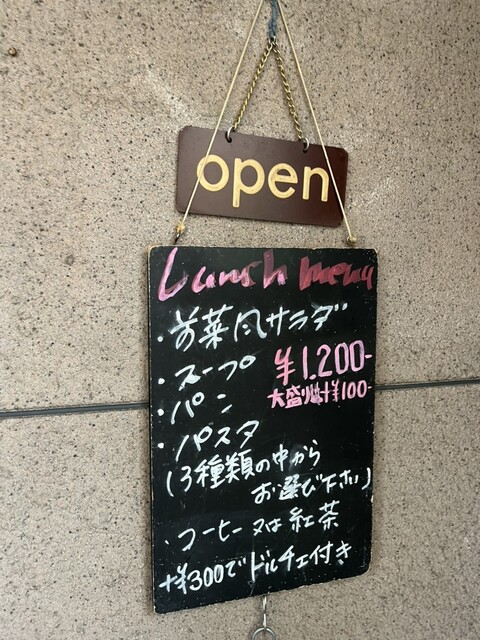 open
Lunch menu
・前菜風サラダ
・スープ
¥1.200-
・パン
大盛りは+¥100-
・パスタ
(3種類の中から
お選び下さい)
・コーヒー又は紅茶
+¥300でドルチェ付き